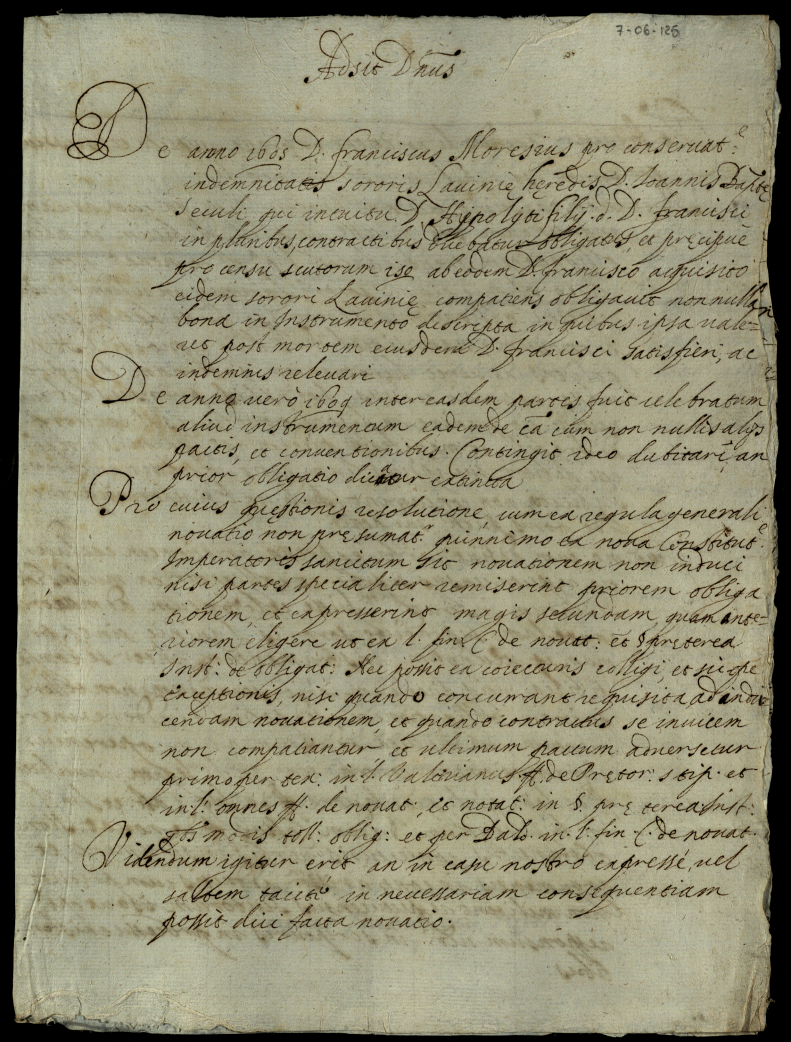 7-06-125
Adsit Dñus
De anno 1605 D. Franciscus Moresius pro conseruat.e
indemnitatis sororis Lauinię hęredis D. Ioannis Bapte
Seculi qui intuitu D. Hypolyti filij d. D. Francisci
in pluribus contractibus obligatus, et pręcipuè
pro censu scutorum 150 ab eodem D. Francisco acquisito
eidem sorori Lauinię compatiens obligauit nonnulla
bona in Instrumento descripta in quibus ipsa uale=
ret post mortem eiusdem D. Francisci satisfieri, ac
indemnis releuari
De anno uerò 1609 inter easdem partes fuit celebratum
aliud instrumentum eadem de cã cum non nullis alijs
pactis, et conuentionibus. Contingit ideo dubitari, an
prior obligatio dicatur extincta
Pro cuius quęstionis resolutione, cum ex regula generali
nouatio non pręsumat.r quinnimo ex noua Constitut.e
Imperatoris sancitum sit nouationem non induci
nisi partes specialiter remiserint priorem obliga
tionem, et expresserint magis secundam, quam ante=
riorem eligere ut ex l. fin. C. de nouat: et § pręterea
Inst: de obligat: Nec possit ex coiecturis colligi, et sic spe
exceptionis, nisi quando concurrant requisita ad indu
cendam nouationem, et quando contractus se inuicem
non compatiantur et ultimum pactum aduersetur
primo per tex: in l. Valerianus ff. de Pretor: stip. et
in l: omnes ff. de nouat. et notat: in §. pręterea Inst:
qbs modis toll: oblig: et per Bald. in l. fin. C. de nouat.
Videndum igitur erit an in casu nostro expressè, uel
saltem tacitè in necessariam consequentiam
possit dici facta nouatio.